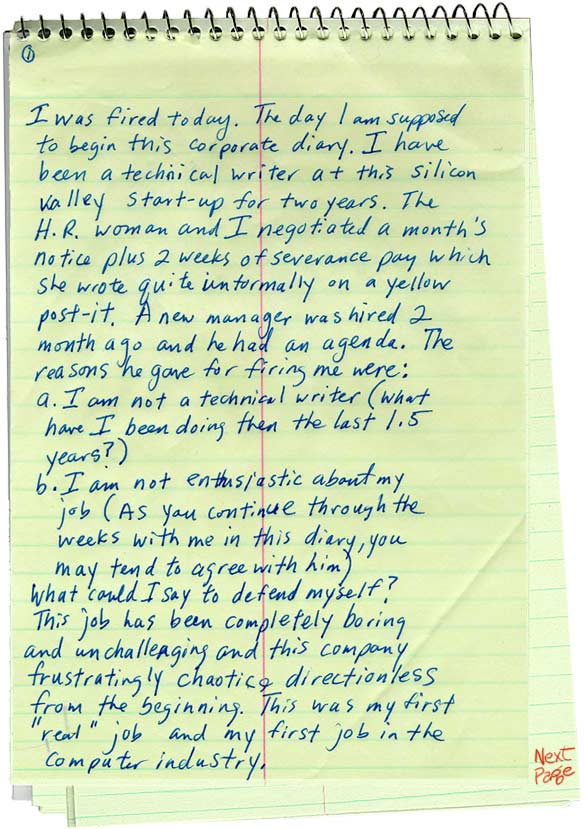 1
I was fired today. The day I am supposed
to begin this corporate diary. I have
been a technical writer at this silicon
valley start-up for two years. The
H.R. woman and I negotiated a month's
notice plus 2 weeks of severance pay which
she wrote quite informally on a yellow
post-it. A new manager was hired 2
month ago and he had an agenda. The
reasons he gave for firing me were:
a. I am not a technical writer (what
have I been doing then the last 1.5
years?)
b. I am not enthusiastic about my
job (As you continue through the
weeks with me in this diary, you
may tend to agree with him)
What could I say to defend myself?
This job has been completely boring
and unchallenging and this company
frustratingly chaotic & directionless
from the beginning. This was my first
"real" job and my first job in the
computer industry.
Next
Page